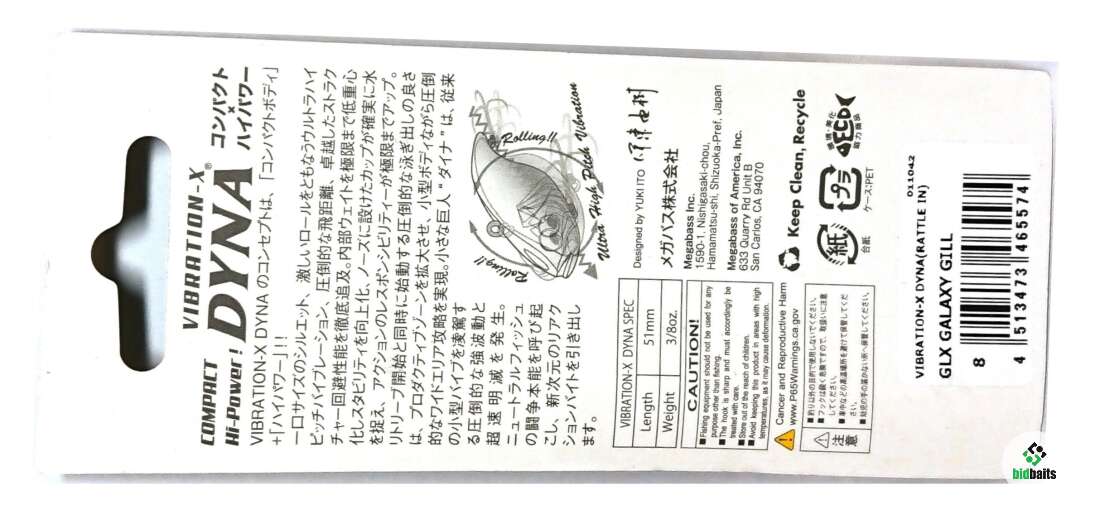 COMPACT
Hi-Power!
VIBRATION-X®
DYNA
コンパクト
×
ハイパワー
VIBRATION-X DYNA のコンセプトは、「コンパクトボディ」
+「ハイパワー」!!
一口サイズのシルエット、激しいロールをともなうウルトラハイ
ピッチバイブレーション、圧倒的な飛距離、卓越したストラク
チャー回避性能を徹底追及。内部ウェイトを極限まで低重心
化しスタビリティを向上化、ノーズに設けたカップが確実に水
を捉え、アクションのレスポンシビリティーが極限までアップ。
リトリーブ開始と同時に始動する圧倒的な泳ぎ出しの良さ
は、プロダクティブゾーンを拡大させ、小型ボディながら圧倒
的なワイドエリア攻略を実現。小さな巨人"ダイナ"は、従来
の小型バイブを凌駕す
る圧倒的な強波動と
超速明滅を発生。
ニュートラルフィッシュ
の闘争本能を呼び起
こし、新次元のリアク
ションバイトを引き出し
ます。
Rolling!!
Rolling!!
Ultra High Pitch Vibration
VIBRATION-X DYNA SPEC
Length 51mm
Weight 3/8oz.
Designed by YUKI ITO
メガバス株式会社
Megabass Inc.
1590-1, Nishigasaki-chou,
Hamamatsu-shi, Shizuoka-Pref, Japan
Megabass of America, Inc.
633 Quarry Rd Unit B
San Carlos, CA 94070
CAUTION!
■Fishing equipment should not be used for any
purpose other than fishing.
■The hook is sharp and must accordingly be
treated with care.
■Store out of the reach of children.
■Avoid keeping this product in areas with high
temperatures, as it may cause deformation.
Cancer and Reproductive Harm
www.P65Warnings.ca.gov
注意
■釣り以外の目的で使用しないでください。
■フックは鋭く危険ですので、取扱いに注意
してください。
■車中などの高温場所を避けて保管してくだ
さい。
■幼児の手の届かない所へ保管してください。
Keep Clean, Recycle
紙
台紙
プラ
ケース:PET
環境・美化
FECO
協力商品
011042
VIBRATION-X DYNA(RATTLE IN)
GLX GALAXY GILL
8
4 513473 465574
bidbaits